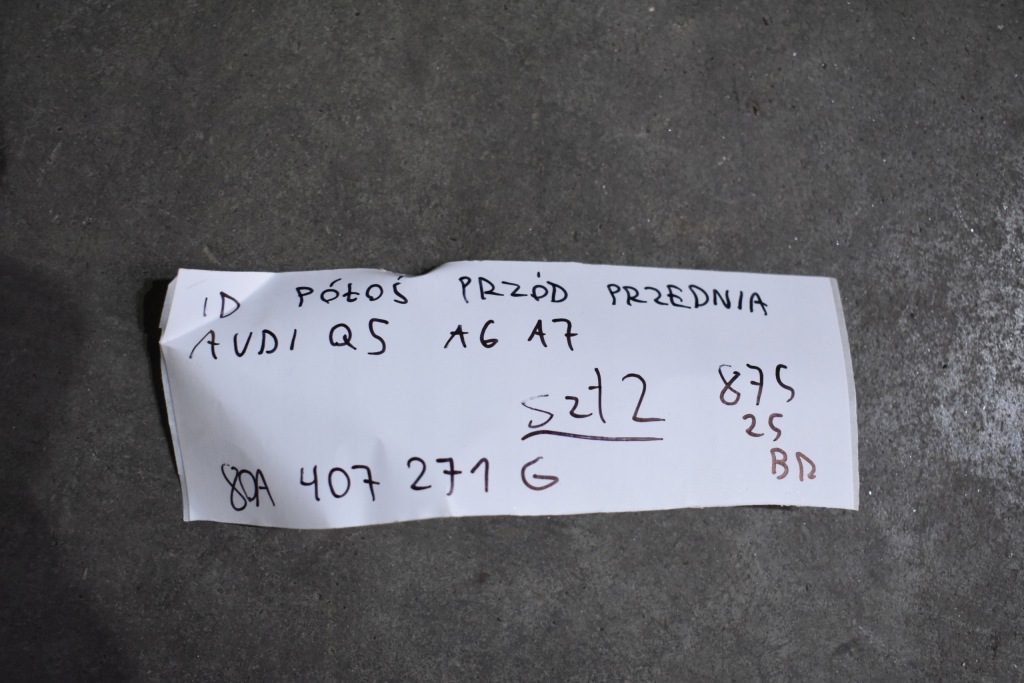 ID PÓŁOŚ PRZÓD PRZEDNIA
AUDI Q5 A6 A7
szt 2 875
25
BR
80A 407 271 G